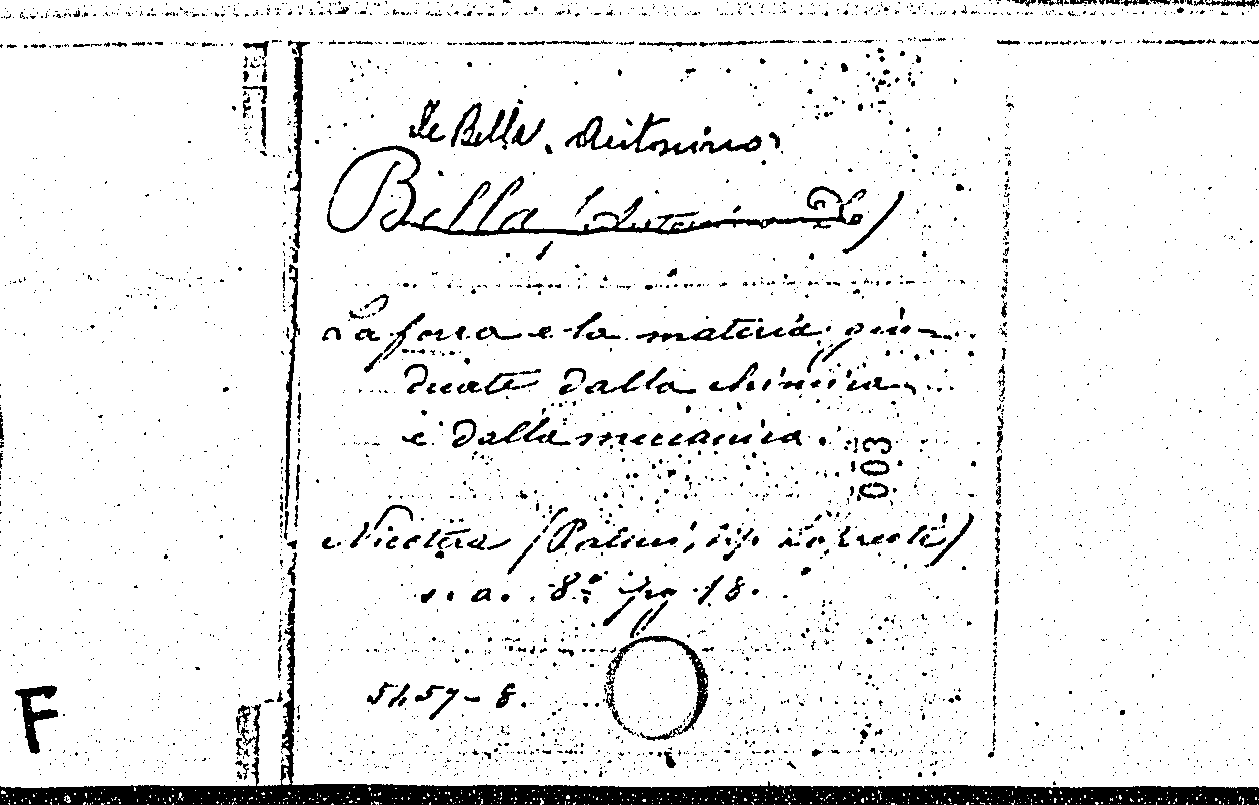 De Bella, Antonino
Bella, (Antonino De)
La forza e la materia giu-
dicate dalla chimica
e dalla meccanica.
003
Nicotera (Palmi, tip. Lopresti)
s. a. 8º pg 18.
5457-8.
F